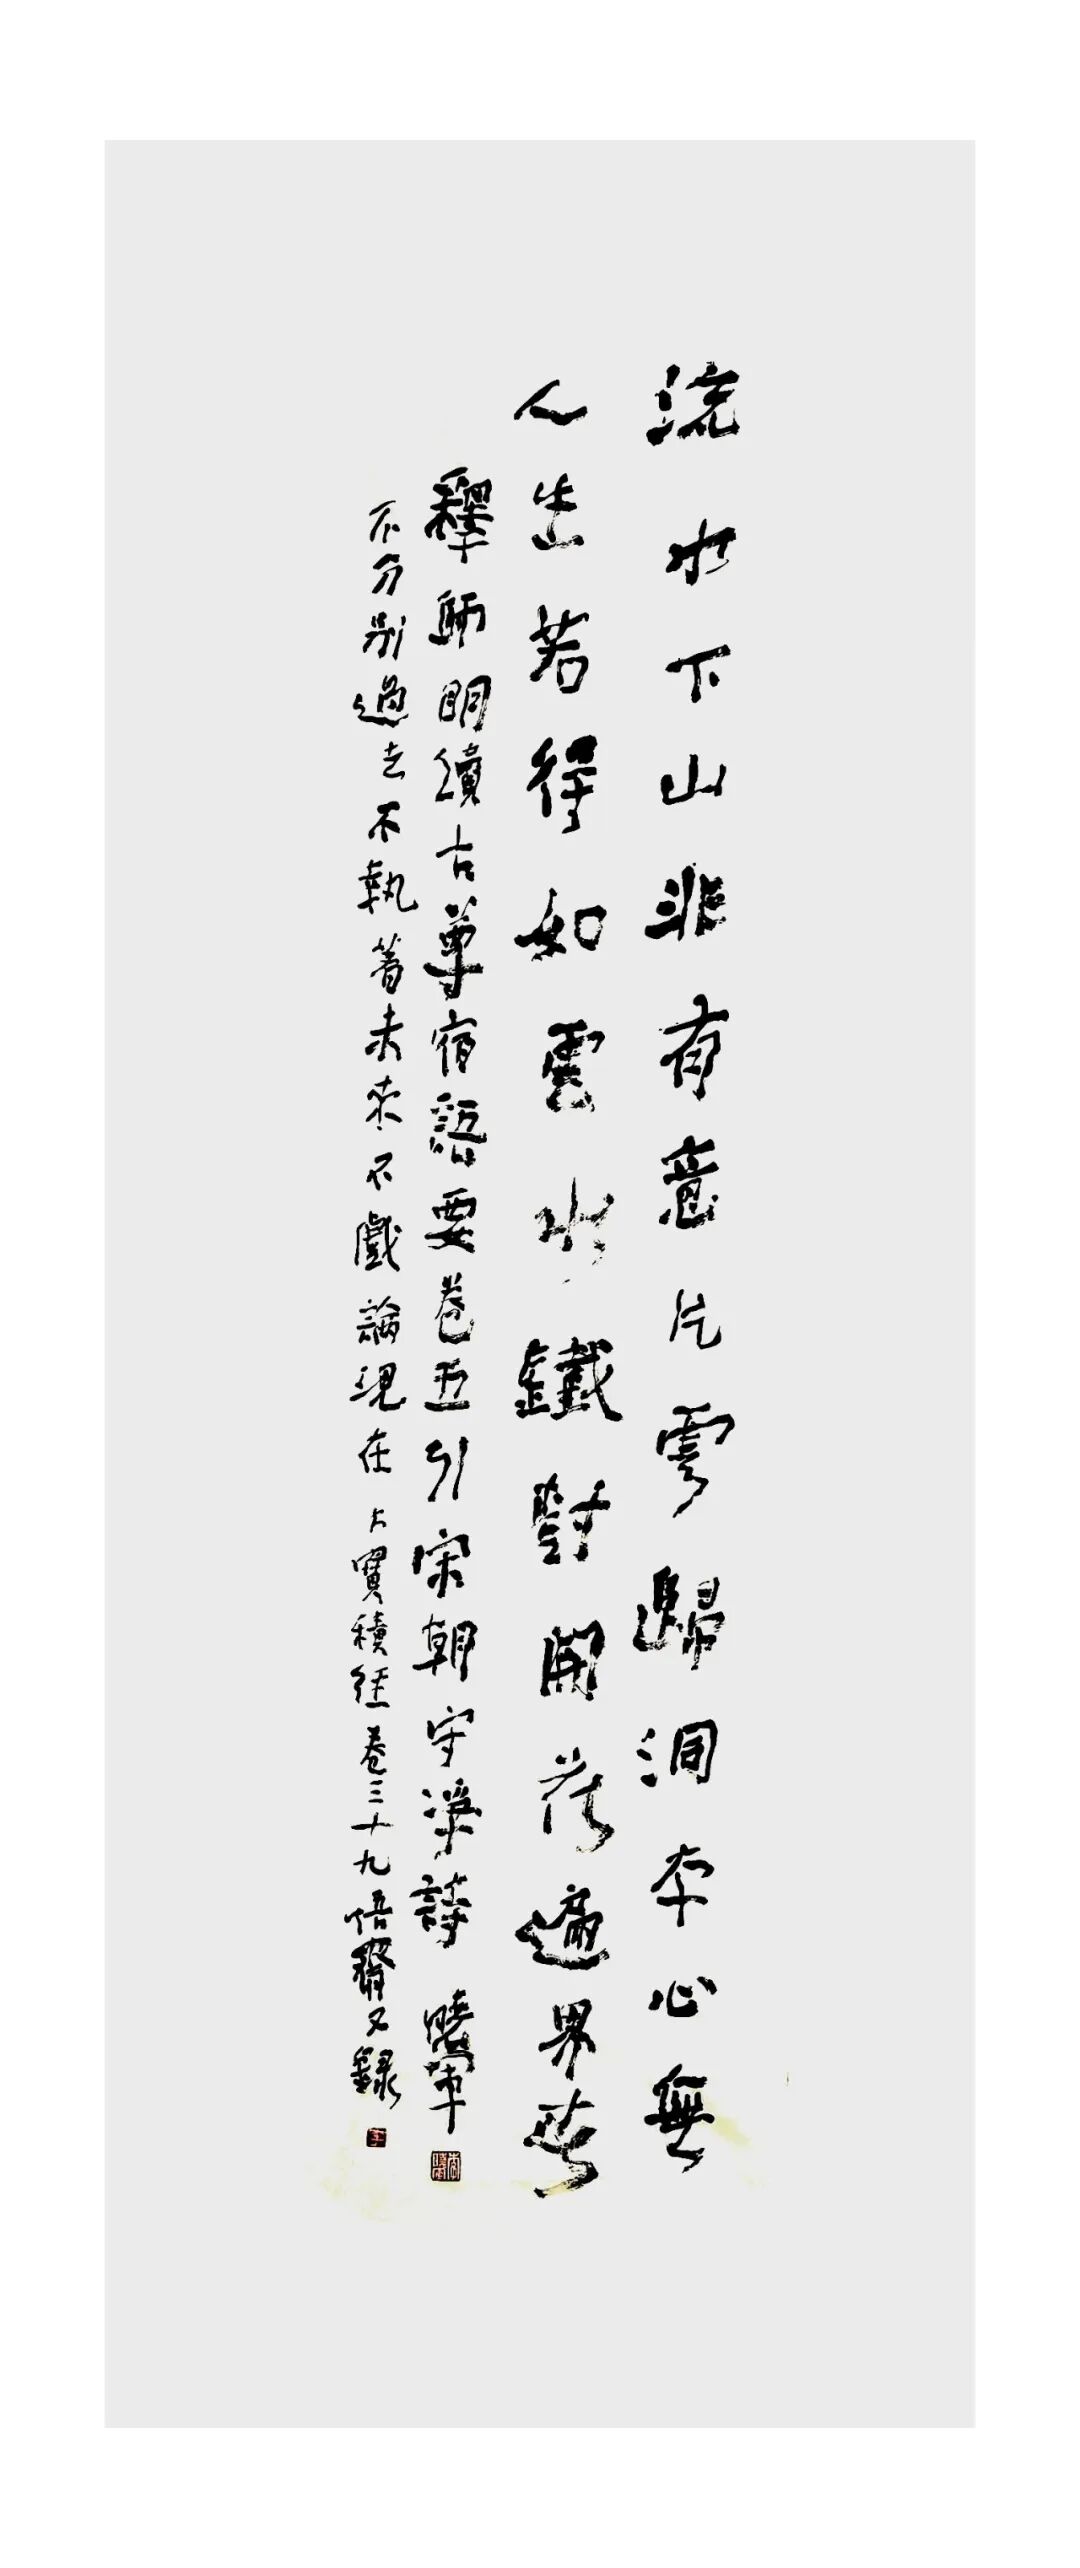 流水下山非有意片雲歸洞本心無
人生若得如雲水鐵樹開花遍界春
釋師明續古尊宿語要卷五引宋朝守淨詩 曉軍
不分別過去不執著未來不戲論現在 大寶積經卷三十九悟齋又錄